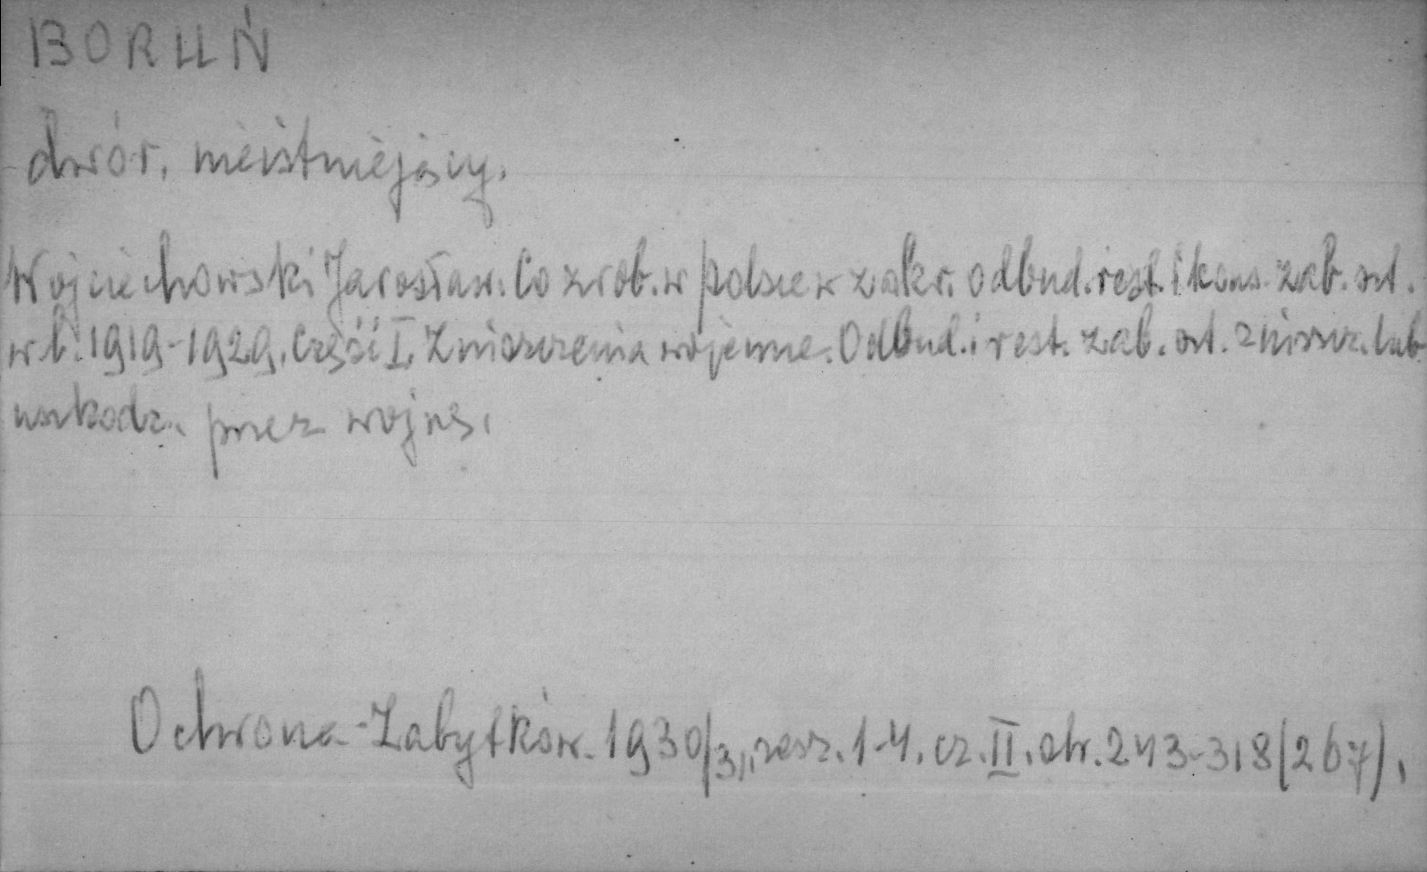 BORUŃ
dwór, nieistniejący.
Wojciechowski Jarosław. Co zrob. w Polsce w zakr. odbud. rest. i kons. zab. szt.
w l. 1919-1929. Część I. Zniszczenia wojenne. Odbud. i rest. zab. szt. zniszcz. lub
uszkodz. przez wojnę.
Ochrona Zabytków. 1930/31, zesz. 1-4. cz. II. str. 243-318 (267).